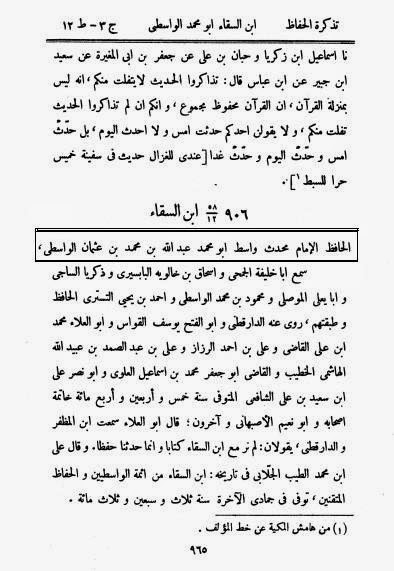 تذكرة الحفاظ ابن السقاء ابو محمد الواسطى ج ٣ - ط ١٢
نا اسماعيل ابن زكريا و حبان بن على عن جعفر بن ابى المغيرة عن سعيد
ابن جبير عن ابن عباس قال: تذاكروا الحديث لايتفلت منكم، انه ليس
بمنزلة القرآن، ان القرآن محفوظ مجموع، و انكم ان لم تذاكروا الحديث
تفلت منكم، و لا يقولن احدكم حدثت امس و لا احدث اليوم، بل حدّث
امس و حدّث اليوم و حدّث غدا [عندى للغزال حديث فى سفينة خميس
حرا للسبط ١].
٩٠٦ ٥٨/١٢ ابن السقاء
الحافظ الإمام محدث واسط ابو محمد عبد الله بن محمد بن عثمان الواسطى،
سمع ابا خليفة الجمحى و اسحاق بن خالويه البابسيرى و ذكريا الساجى
و ابا يعلى الموصلى و محمود بن محمد الواسطى و احمد بن يحيى التسترى الحافظ
و طبقتهم، روى عنه الدارقطنى و ابو الفتح يوسف القواس و ابو العلاء محمد
ابن على القاضى و على بن احمد الرزاز و على بن عبد الصمد بن عبيد الله
الهاشمى الخطيب و القاضى ابو جعفر محمد بن اسماعيل العلوى و ابو نصر على
ابن سعيد بن على الشافعى المتوفى سنة خمس و أربعين و أربع مائة خاتمة
اصحابه و ابو نعيم الأصبهانى و آخرون؛ قال ابو العلاء سمعت ابن المظفر
و الدارقطنى، يقولان: لم نر مع ابن السقاء كتابا و انما حدثنا حفظا. و قال على
ابن محمد الطيب الجلّابى فى تاريخه: ابن السقاء من ائمة الواسطيين و الحفاظ
المتقنين، توفى فى جمادى الآخرة سنة ثلاث و سبعين و ثلاث مائة.
(١) من هامش المكية عن خط المؤلف.
٩٦٥